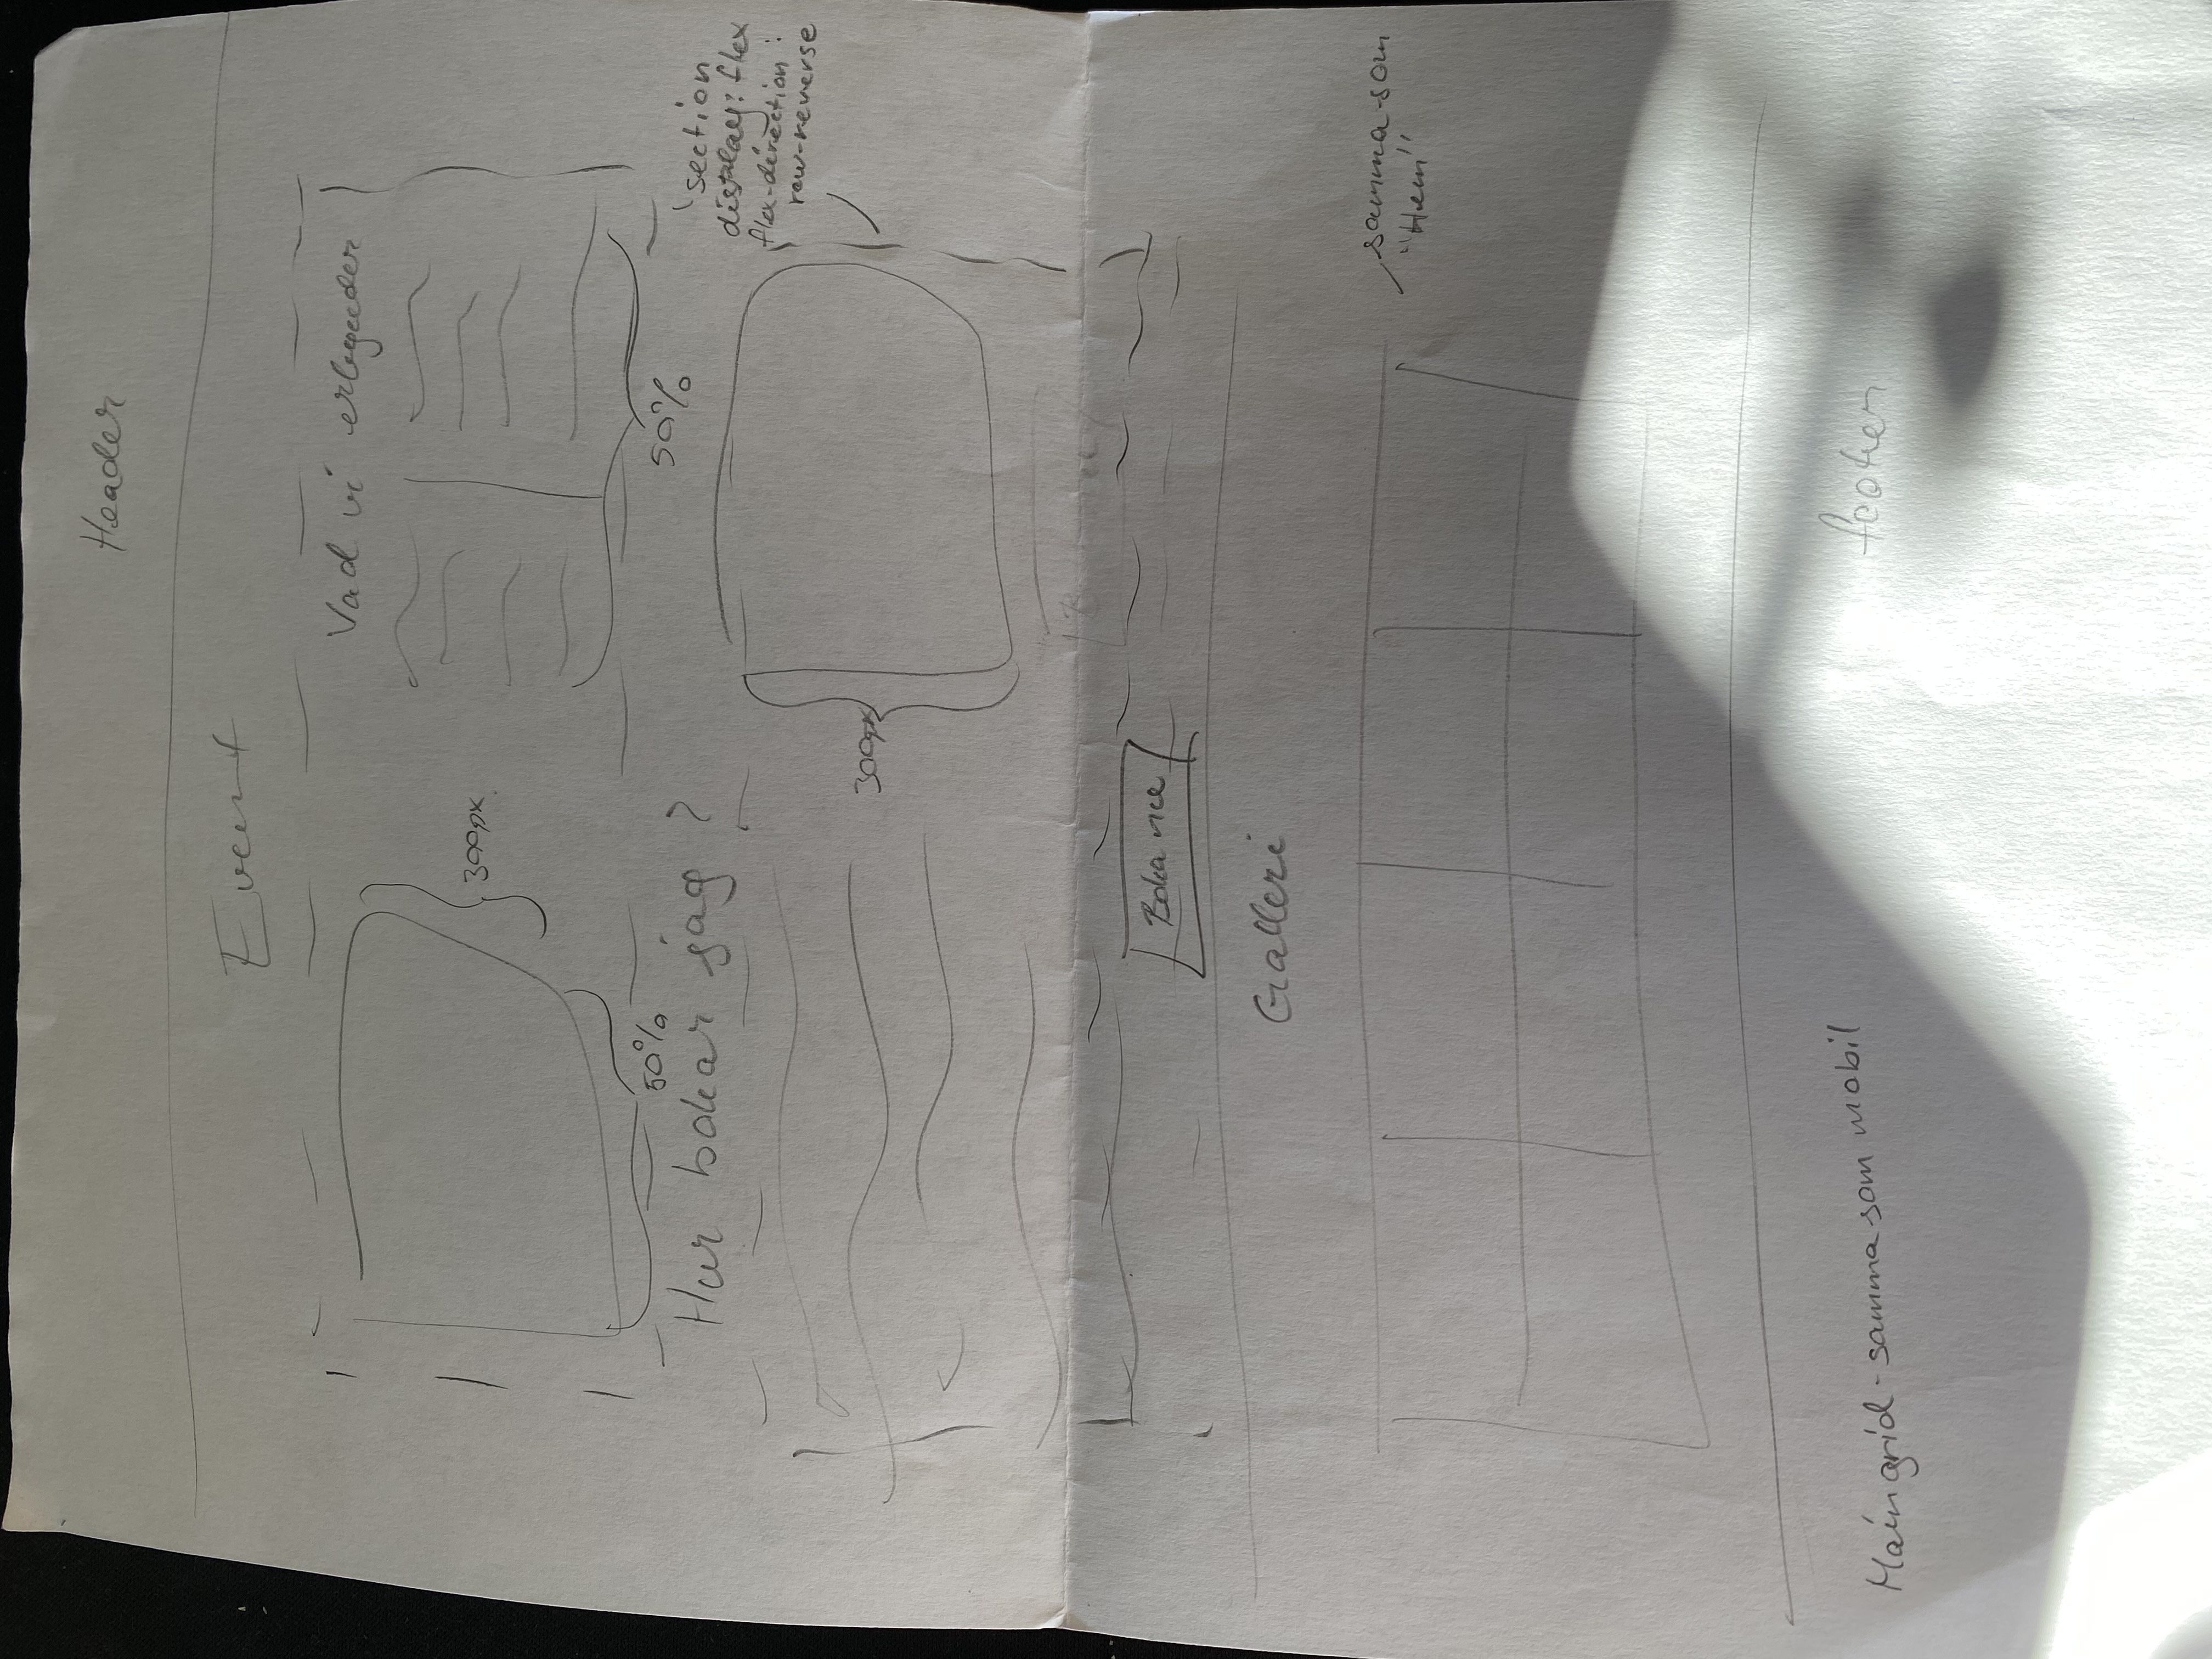 Header
Event
Vad vi erbyuder
300px
50%
50%
Hur bokar jag?
section
display: flex
flex-direction:
row-reverse
300px
Boka nu
Galleri
samma som
"Hem"
Main grid - samma som mobil
footer